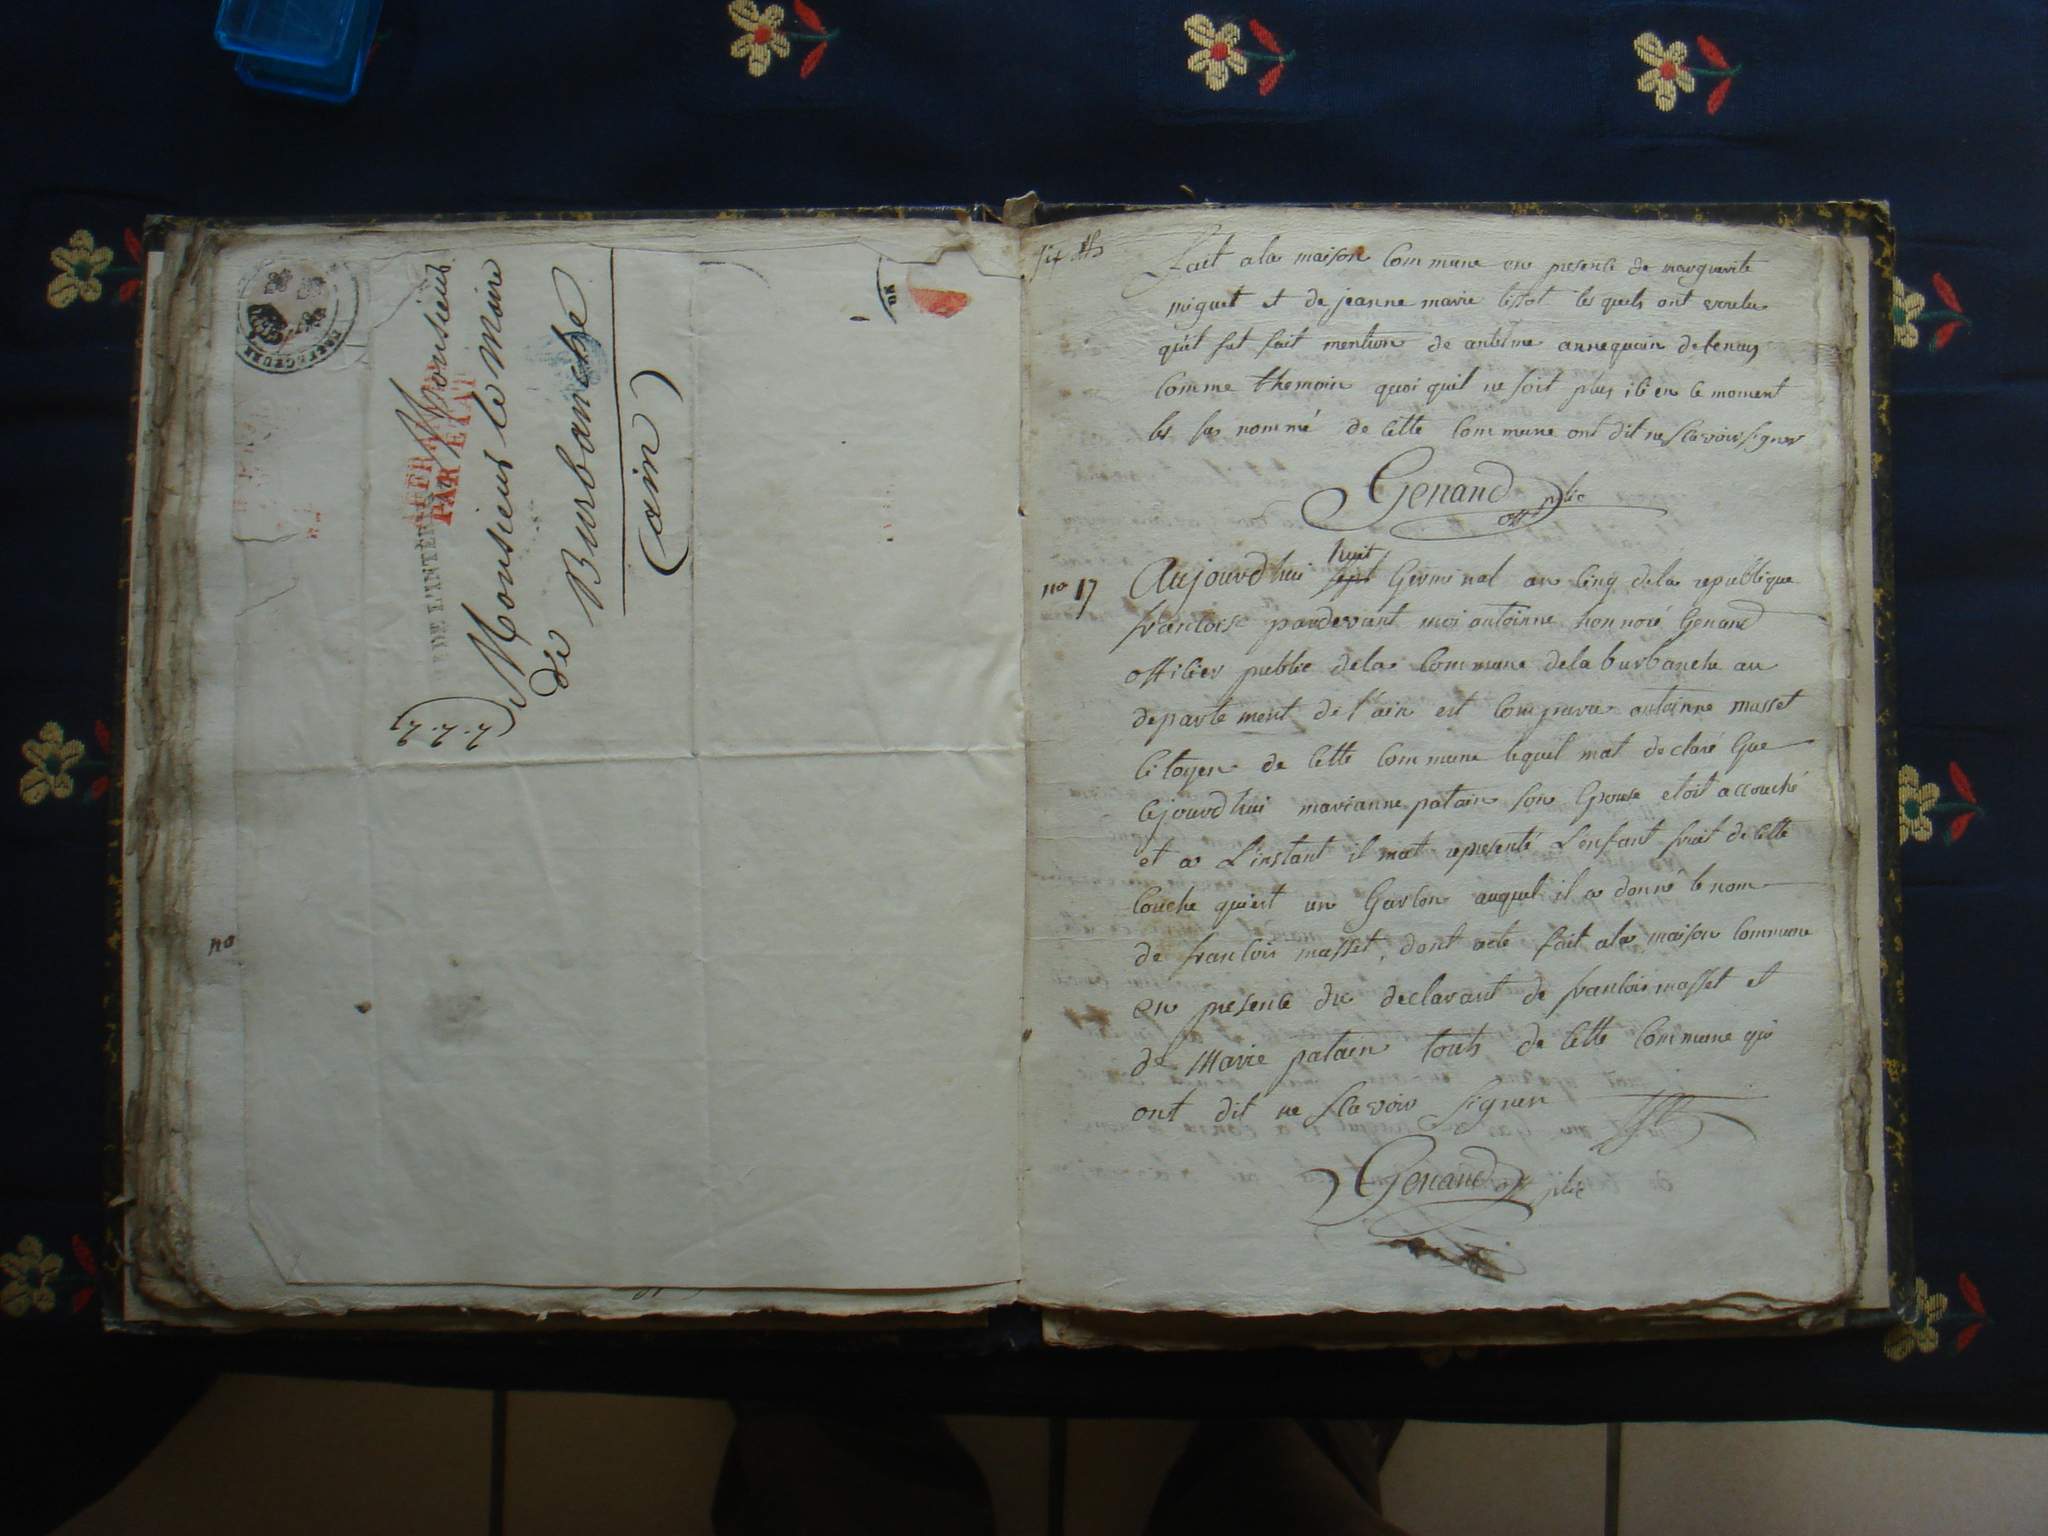 Monsieur
Monsieur le Maire
de
Burbanche
(ain)
DE L'INTÉR
PAR ETAT
no
Fait a la maison Commune en presence de marguerite
miguet et de jeanne marie tissot les quels ont voulu
qu'et fut fait mention de antelme annequain de tenay
Comme themoin quoi quil ne soit plus ici en ce moment
les sus nommé de cette Commune ont dit ne scavoir signer
Genand off plic
no 17
huit
Aujourdhui sept Germinal an cinq de la republique
francoise pardevant moi antoinne honnoré Genand
officier public de la Commune de la burbanche au
departement de l'ain est Comparu antoinne masset
Citoyen de cette Commune lequel mat declaré Que
Cejourdhui marianne patain son Epouse etoit accouché
et a L'instant il mat representé L'enfant fruit de cette
Couche qu'est un Garcon auquel il a donné le nom
de francois masset, dont acte fait a la maison Commune
en presence du declarant de francois masset et
de Marie patain touts de cette Commune qui
ont dit ne scavoir signer
Genand off plic